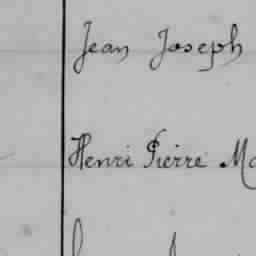 Jean Joseph
Henri Pierre